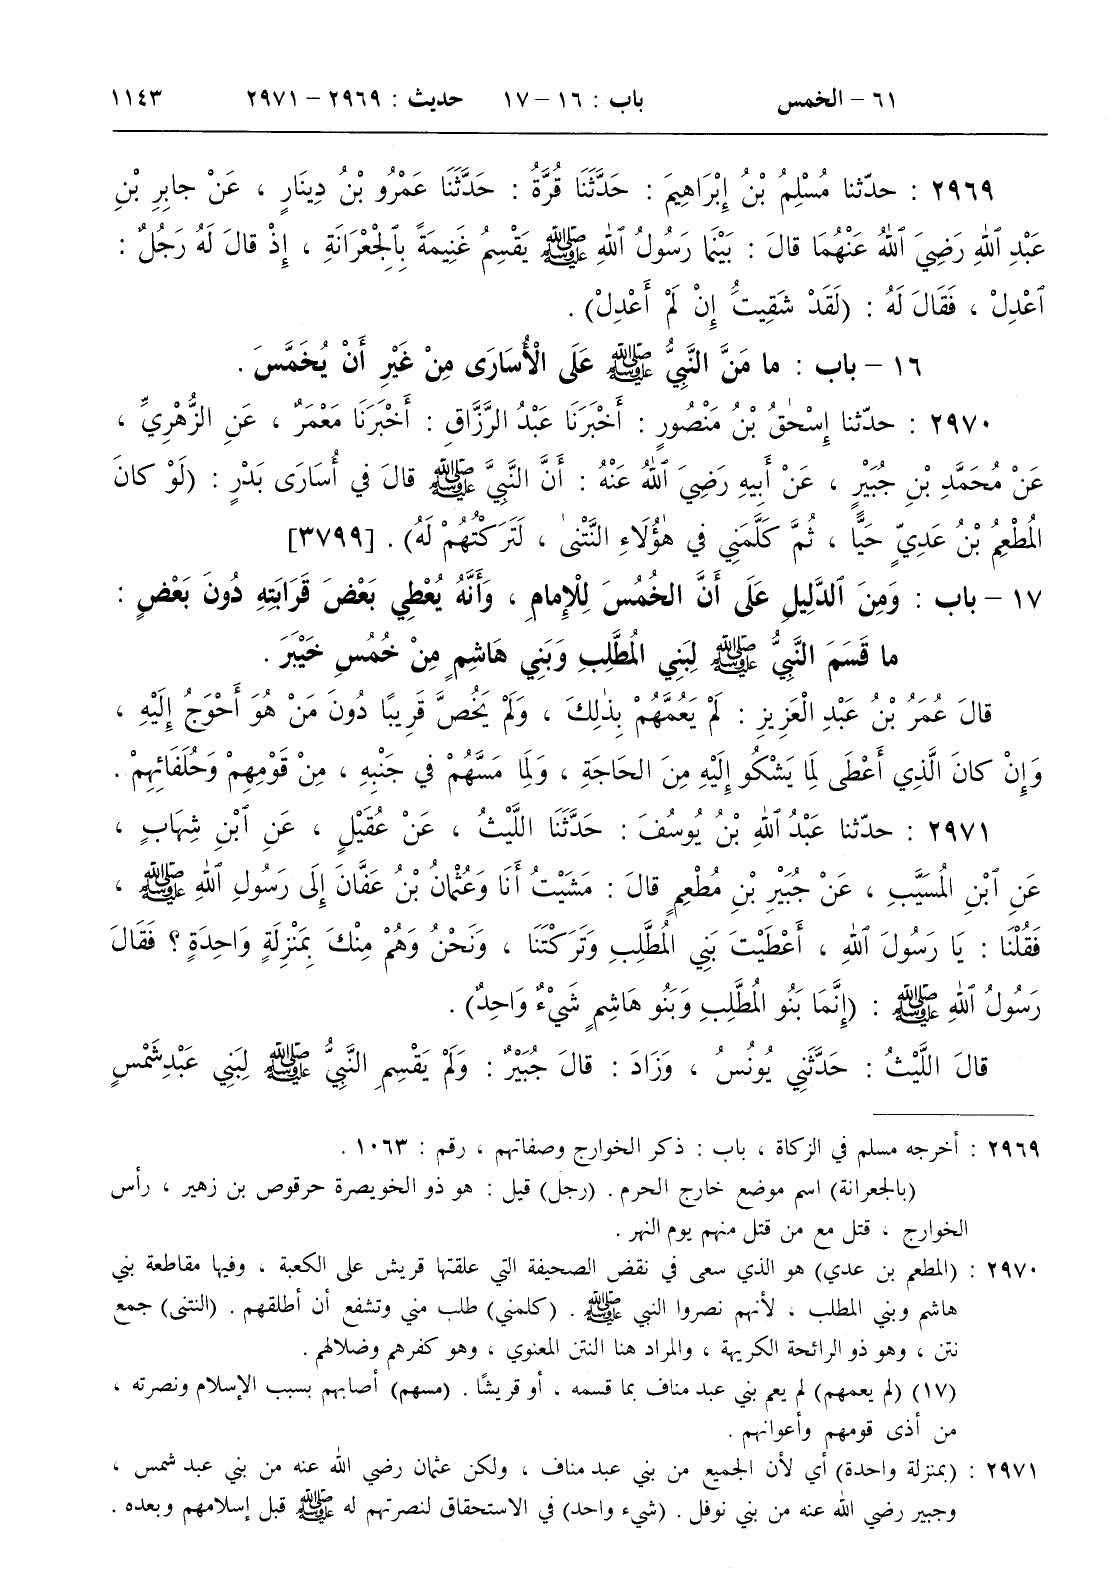 ٦١ – الخمس باب : ١٦ – ١٧ حديث : ٢٩٦٩ – ٢٩٧١ ١١٤٣
٢٩٦٩ : حدّثنا مُسْلِمُ بْنُ إِبْرَاهِيمَ : حَدَّثَنَا قُرَّةُ : حَدَّثَنَا عَمْرُو بْنُ دِينَارٍ ، عَنْ جابِرِ بْنِ
عَبْدِ ٱللهِ رَضِيَ ٱللهُ عَنْهُمَا قالَ : بَيْنَما رَسُولُ ٱللهِ ﷺ يَقْسِمُ غَنِيمَةً بِٱلْجِعْرَانَةِ ، إِذْ قالَ لَهُ رَجُلٌ :
ٱعْدِلْ ، فَقَالَ لَهُ : (لَقَدْ شَقِيتُ إِنْ لَمْ أَعْدِلْ) .
١٦ – باب : ما مَنَّ النَّبِيُّ ﷺ عَلَى الْأُسَارَى مِنْ غَيْرِ أَنْ يُخَمِّسَ .
٢٩٧٠ : حدّثنا إِسْحٰقُ بْنُ مَنْصُورٍ : أَخْبَرَنَا عَبْدُ الرَّزَّاقِ : أَخْبَرَنَا مَعْمَرٌ ، عَنِ الزُّهْرِيِّ ،
عَنْ مُحَمَّدِ بْنِ جُبَيْرٍ ، عَنْ أَبِيهِ رَضِيَ ٱللهُ عَنْهُ : أَنَّ النَّبِيَّ ﷺ قالَ في أُسَارَى بَدْرٍ : (لَوْ كانَ
المُطْعِمُ بْنُ عَدِيٍّ حَيًّا ، ثُمَّ كَلَّمَنِي في هٰؤُلَاءِ النَّتْنَىٰ ، لَتَرَكْتُهُمْ لَهُ) . [٣٧٩٩]
١٧ – باب : وَمِنَ ٱلدَّلِيلِ عَلَى أَنَّ الخُمُسَ لِلْإِمامِ ، وَأَنَّهُ يُعْطِي بَعْضَ قَرَابَتِهِ دُونَ بَعْضٍ :
ما قَسَمَ النَّبِيُّ ﷺ لِبَنِي المُطَّلِبِ وَبَنِي هَاشِمٍ مِنْ خُمُسِ خَيْبَرَ .
قالَ عُمَرُ بْنُ عَبْدِ الْعَزِيزِ : لَمْ يَعُمَّهُمْ بِذٰلِكَ ، وَلَمْ يَخُصَّ قَرِيبًا دُونَ مَنْ هُوَ أَحْوَجُ إِلَيْهِ ،
وَإِنْ كانَ الَّذِي أَعْطَى لِمَا يَشْكُو إِلَيْهِ مِنَ الحَاجَةِ ، وَلِمَا مَسَّهُمْ في جَنْبِهِ ، مِنْ قَوْمِهِمْ وَحُلَفَائِهِمْ .
٢٩٧١ : حدّثنا عَبْدُ ٱللهِ بْنُ يُوسُفَ : حَدَّثَنَا اللَّيْثُ ، عَنْ عُقَيْلٍ ، عَنِ ٱبْنِ شِهَابٍ ،
عَنِ ٱبْنِ الْمُسَيَّبِ ، عَنْ جُبَيْرِ بْنِ مُطْعِمٍ قالَ : مَشَيْتُ أَنَا وَعُثْمانُ بْنُ عَفَّانَ إِلَى رَسُولِ ٱللهِ ﷺ ،
فَقُلْنَا : يَا رَسُولَ ٱللهِ ، أَعْطَيْتَ بَنِي المُطَّلِبِ وَتَرَكْتَنَا ، وَنَحْنُ وَهُمْ مِنْكَ بِمَنْزِلَةٍ وَاحِدَةٍ ؟ فَقَالَ
رَسُولُ ٱللهِ ﷺ : (إِنَّمَا بَنُو المُطَّلِبِ وَبَنُو هَاشِمٍ شَيْءٌ وَاحِدٌ) .
قالَ اللَّيْثُ : حَدَّثَنِي يُونُسُ ، وَزَادَ : قالَ جُبَيْرٌ : وَلَمْ يَقْسِمِ النَّبِيُّ ﷺ لِبَنِي عَبْدِ شَمْسٍ
٢٩٦٩ : أخرجه مسلم في الزكاة ، باب : ذكر الخوارج وصفاتهم ، رقم : ١٠٦٣ .
(بالجعرانة) اسم موضع خارج الحرم . (رجل) قيل : هو ذو الخويصرة حرقوص بن زهير ، رأس
الخوارج ، قتل مع من قتل منهم يوم النهر .
٢٩٧٠ : (المطعم بن عدي) هو الذي سعى في نقض الصحيفة التي علقتها قريش على الكعبة ، وفيها مقاطعة بني
هاشم وبني المطلب ، لأنهم نصروا النبي ﷺ . (كلمني) طلب مني وتشفع أن أطلقهم . (النتنى) جمع
نتن ، وهو ذو الرائحة الكريهة ، والمراد هنا النتن المعنوي ، وهو كفرهم وضلالهم .
(١٧) (لم يعمهم) لم يعم بني عبد مناف بما قسمه ، أو قريشًا . (مسهم) أصابهم بسبب الإسلام ونصرته ،
من أذى قومهم وأعوانهم .
٢٩٧١ : (بمنزلة واحدة) أي لأن الجميع من بني عبد مناف ، ولكن عثمان رضي الله عنه من بني عبد شمس ،
وجبير رضي الله عنه من بني نوفل . (شيء واحد) في الاستحقاق لنصرتهم له ﷺ قبل إسلامهم وبعده .